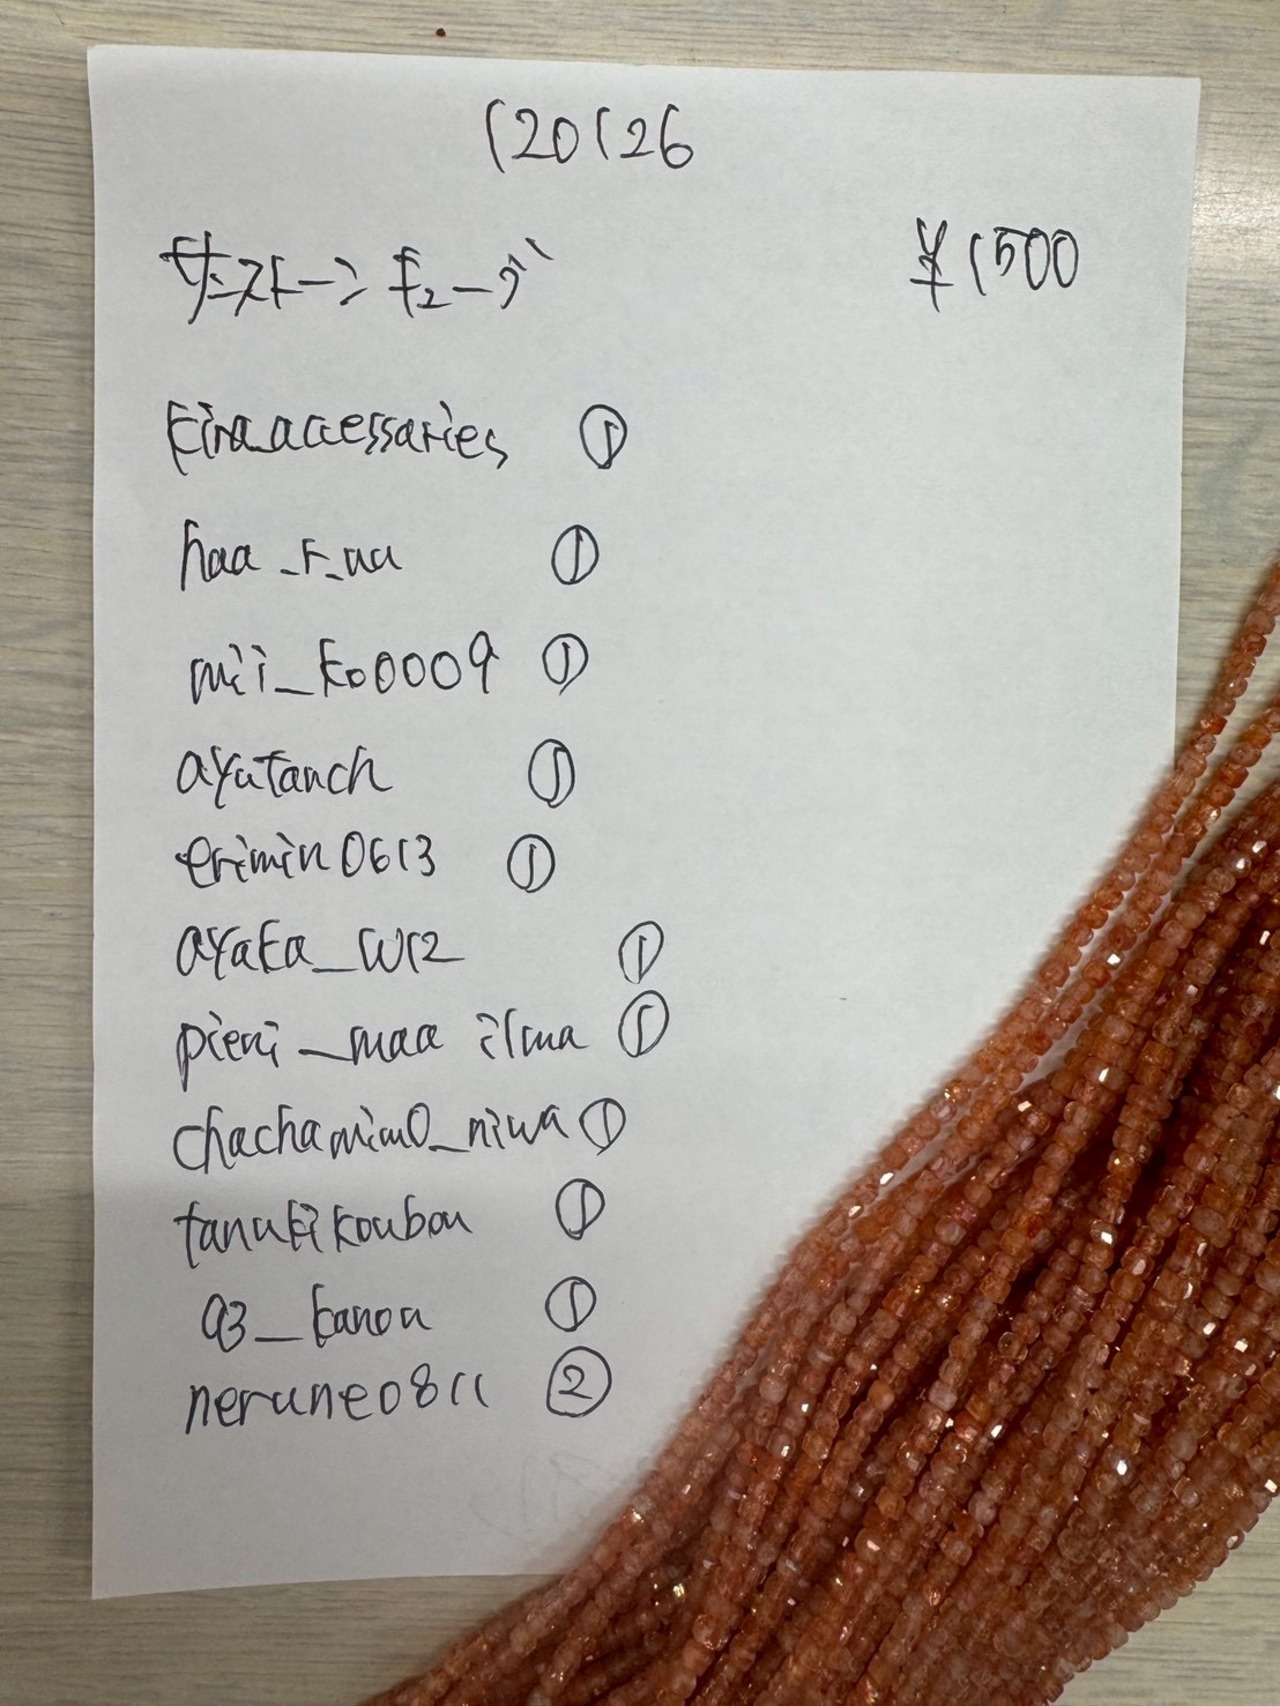 120126
サンストーン キューブ ¥1500
kira_accessaries ①
haa_r_uu ①
mii_ko0009 ①
ayatanch ①
erimin0613 ①
ayaka_w12 ①
pieni_maa ilma ①
chachamimo_niwa ①
tanukikoubou ①
a3_kanon ①
nerune0811 ②